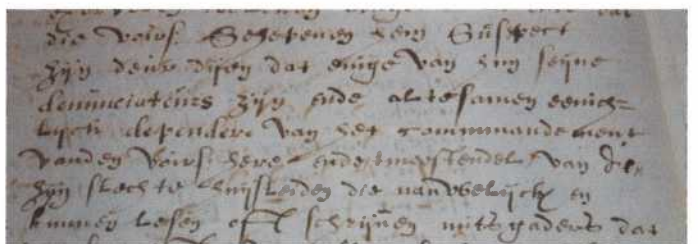 die voirs. Schepenen hem Suspect
zijn deur dijen dat enige van hun sijne
denunciateurs zijn ende altesamen eenich=
lijck dependere van het commandement
vanden voirs. here ende tmeestendel van de
zijn slechte huijsleiden die nauwelijckx en
kunnen lesen oft schrijven mitsgaders dat